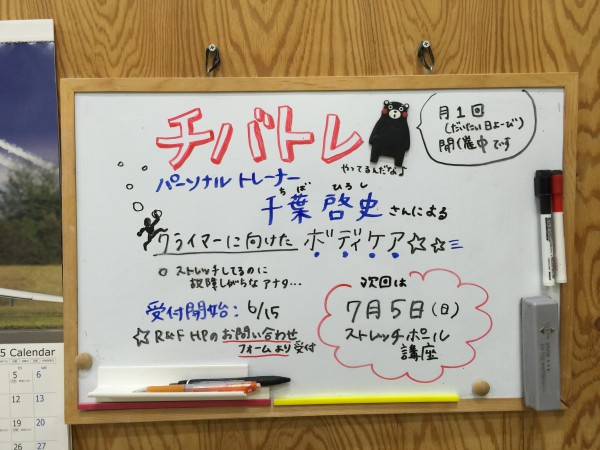 チバトレ
やってるんだな♪
月1回
(だいたい日よーび)
開催中です
パーソナルトレーナー
ちば ひろし
千葉 啓史 さんによる
クライマーに向けた ボディケア☆☆
○ ストレッチしてるのに
故障しがちな アナタ…
受付開始: 6/15
☆ R&F HPの お問い合わせ
フォームより 受付
次回は
7月5日(日)
ストレッチポール
講座
5 Calendar
5 6
12 13
19 20
26 27